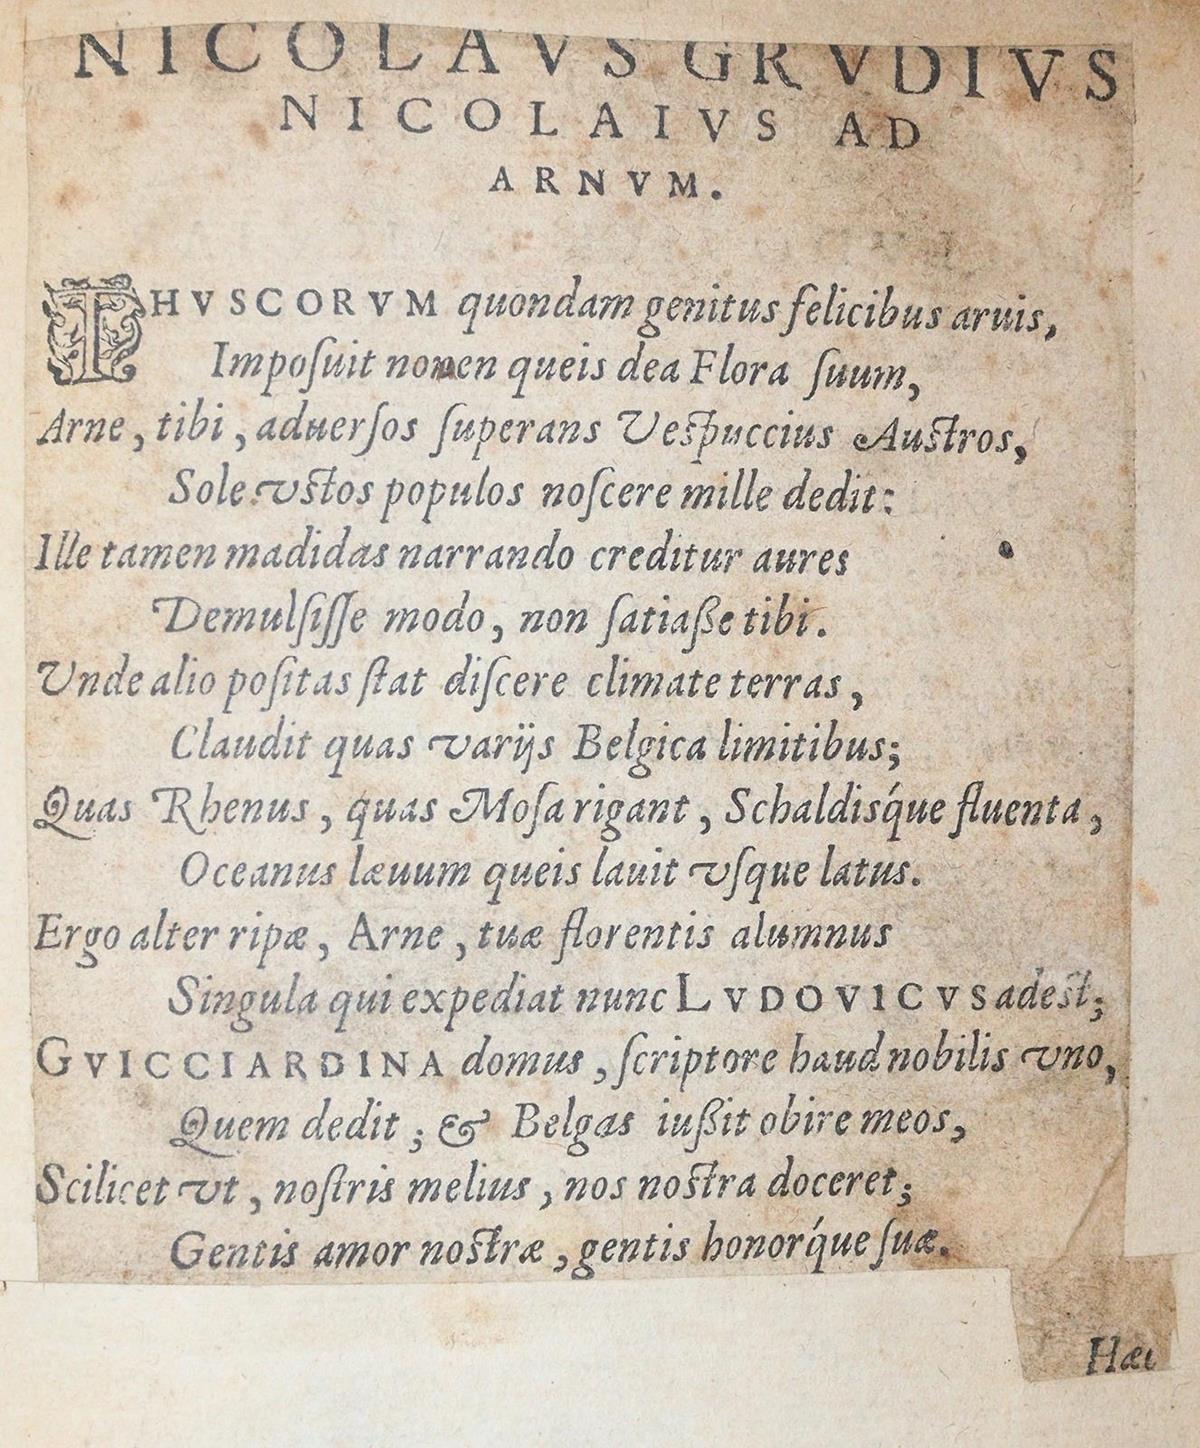 NICOLAVS GRVDIVS
NICOLAIVS AD
ARNVM.
THVSCORVM quondam genitus felicibus aruis,
Impoſuit nomen queis dea Flora ſuum,
Arne, tibi, aduerſos ſuperans Veſpuccius Auſtros,
Sole vſtos populos noſcere mille dedit:
Ille tamen madidas narrando creditur aures
Demulſiſſe modo, non ſatiaße tibi.
Vnde alio poſitas ſtat diſcere climate terras,
Claudit quas varijs Belgica limitibus;
Quas Rhenus, quas Moſa rigant, Schaldisq́ue fluenta,
Oceanus læuum queis lauit vſque latus.
Ergo alter ripæ, Arne, tuæ florentis alumnus
Singula qui expediat nunc LVDOVICVS adeſt;
GVICCIARDINA domus, ſcriptore haud nobilis vno,
Quem dedit; & Belgas iußit obire meos,
Scilicet vt, noſtris melius, nos noſtra doceret;
Gentis amor noſtræ, gentis honorq́ue ſuæ.